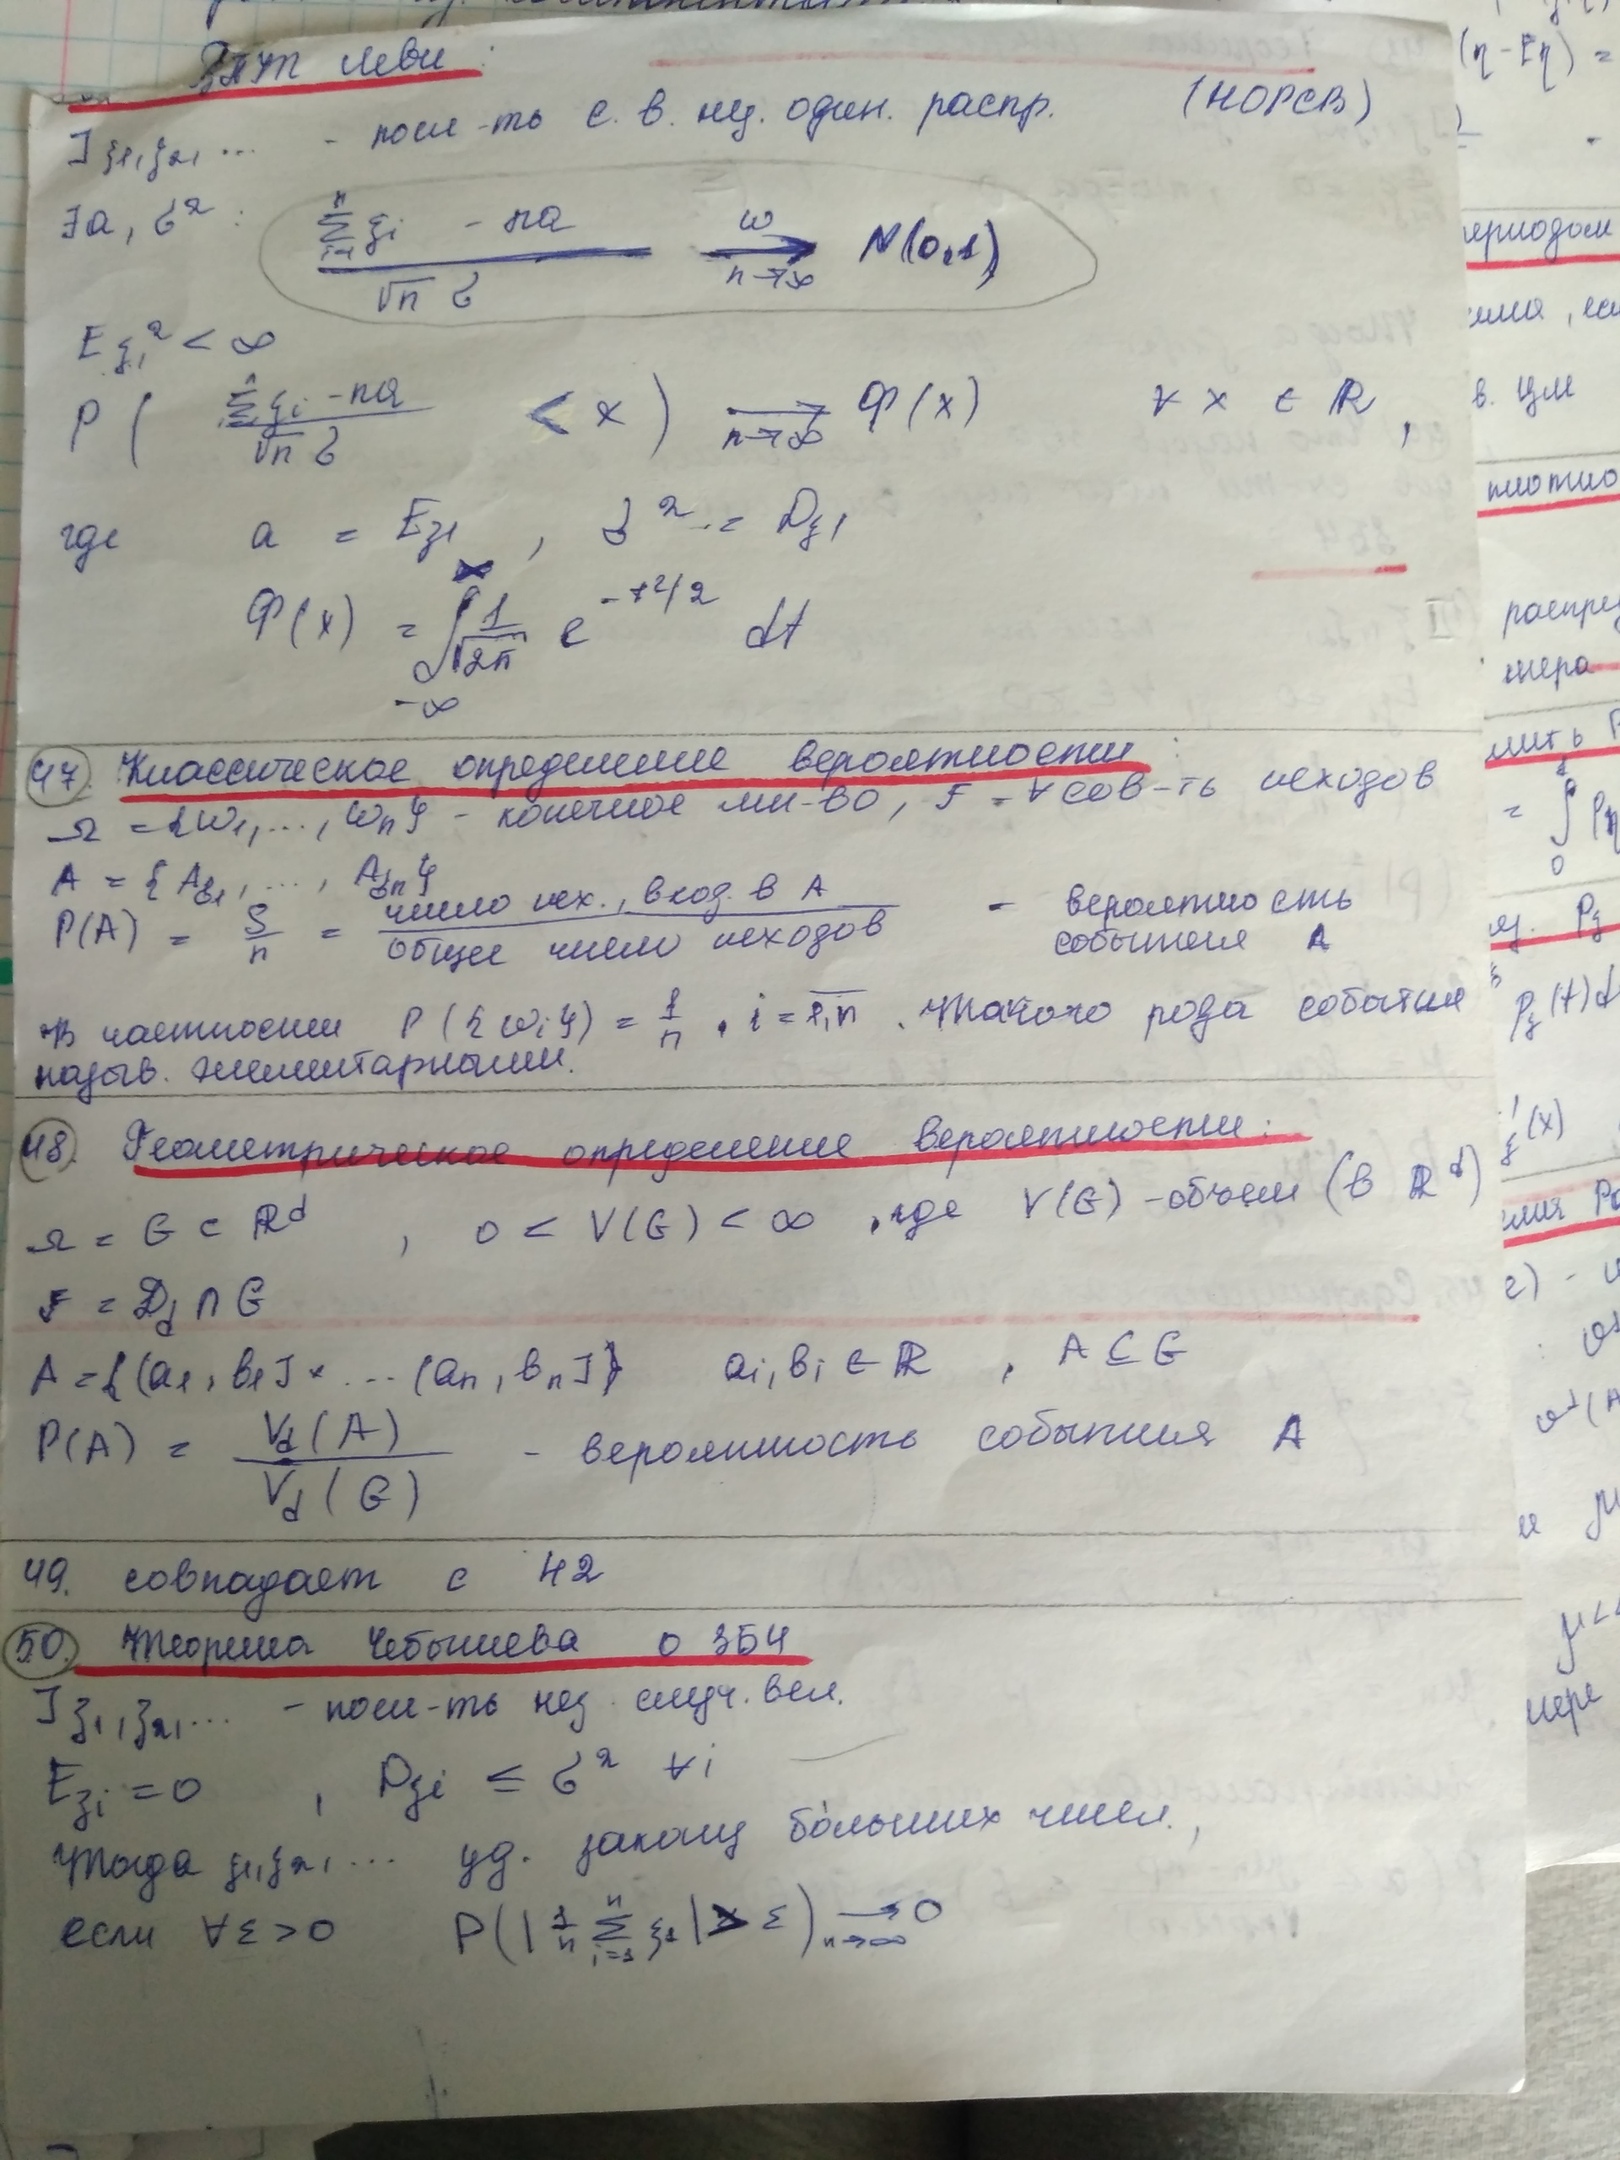 ЗПУТ Леви:
] ξ₁, ξ₂, ... - посл-ть с. в. нез. один. распр. (НОРСВ)
∃ a, σ²: (∑ᵢ₌₁ⁿ ξᵢ - na) / (√n σ) →ʷ n→∞ N(0,1)
Eξ₁² < ∞
P( (∑ᵢ₌₁ⁿ ξᵢ - na) / (√n σ) < x ) → n→∞ Φ(x) ∀ x ∈ ℝ,
где a = Eξ₁, σ² = Dξ₁
Φ(x) = ∫₋∞ˣ 1/√2π e^(-t²/2) dt
47. Классическое определение вероятности:
Ω = {ω₁, ..., ωₙ} - конечное мн-во, F - ∀ сов-ть исходов
A = {A
P(A) = S/n = число исх., вход. в A / общее число исходов - вероятность события A
В частности P({ωᵢ}) = 1/n, i = 1,n. Такого рода события
назыв. элементарными.
48. Геометрическое определение вероятности:
Ω = G ⊂ ℝᵈ, 0 < V(G) < ∞, где V(G) - объем (в ℝᵈ)
F = ∩ G
A = {(a₁, b₁] × ... (aₙ, bₙ]} aᵢ, bᵢ ∈ ℝ, A ⊆ G
P(A) = V_d(A) / V_d(G) - вероятность события A
49. совпадает с 42
50. Теорема Чебышева о ЗБЧ
] ξ₁, ξ₂, ... - посл-ть нез. случ. вел.
Eξᵢ = 0, Dξᵢ ≤ σ² ∀i
Тогда ξ₁, ξ₂, ... уд. закону больших чисел,
если ∀ε > 0 P(|1/n ∑ᵢ₌₁ⁿ ξ₁| > ε) → n→∞ 0
(η - Eη) =
периодом
в. ЦМ
распред
= ∫₀ Pη
Pξ
Pξ(t)d
ξ(x)
мере